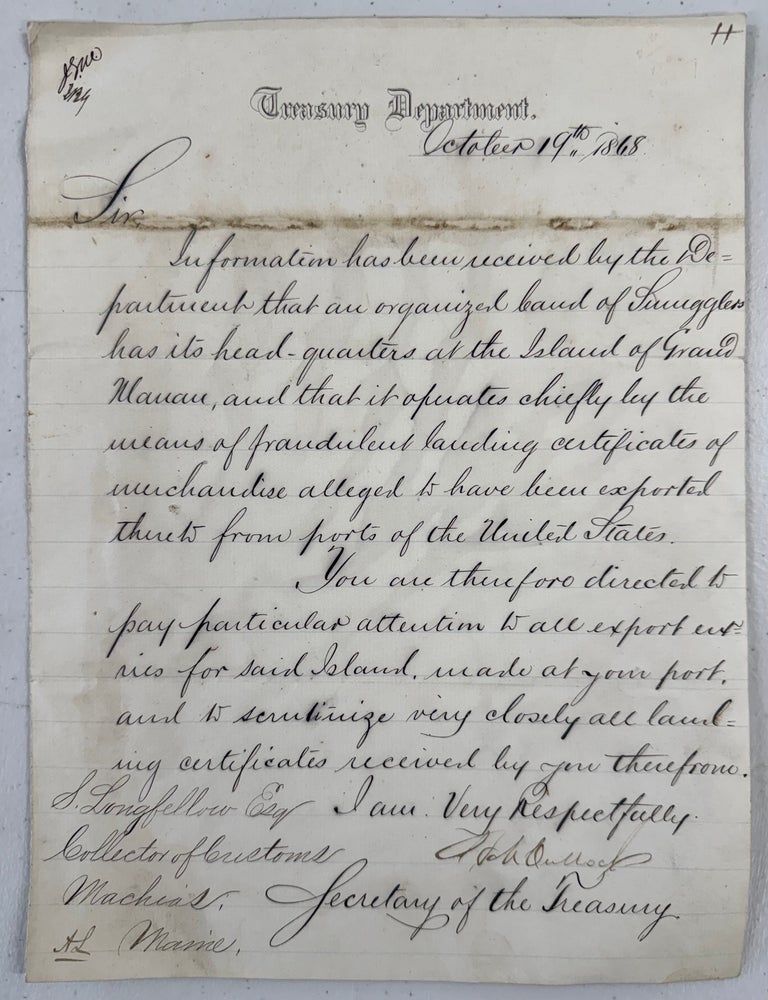 H
Treasury Department.
October 19th, 1868.
Sir.
Information has been received by the De=
partment that an organized band of Smugglers
has its head-quarters at the Island of Grand
Manan, and that it operates chiefly by the
means of fraudulent landing certificates of
merchandise alleged to have been exported
thereto from ports of the United States.
You are therefore directed to
pay particular attention to all export ent=
ries for said Island, made at your port,
and to scrutinize very closely all land=
ing certificates received by you therefrom.
S. Longfellow Esq I am. Very Respectfully.
Collector of Customs
Machias, Secretary of the Treasury
Maine.